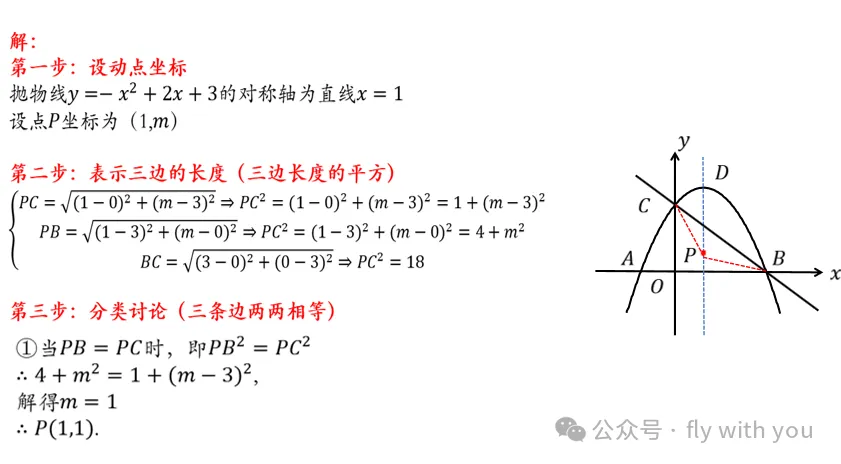 解：
第一步：设动点坐标
抛物线y =− x² + 2x + 3的对称轴为直线x = 1
设点P坐标为（1,m）
第二步：表示三边的长度（三边长度的平方）
PC = √((1 − 0)² + (m − 3)²) ⇒ PC² = (1 − 0)² + (m − 3)² = 1 + (m − 3)²
PB = √((1 − 3)² + (m − 0)²) ⇒ PC² = (1 − 3)² + (m − 0)² = 4 + m²
BC = √((3 − 0)² + (0 − 3)²) ⇒ PC² = 18
第三步：分类讨论（三条边两两相等）
①当PB = PC时，即PB² = PC²
∴ 4 + m² = 1 + (m − 3)²,
解得m = 1
∴ P(1,1).
y
D
C
A
P
B
x
O
公众号 · fly with you